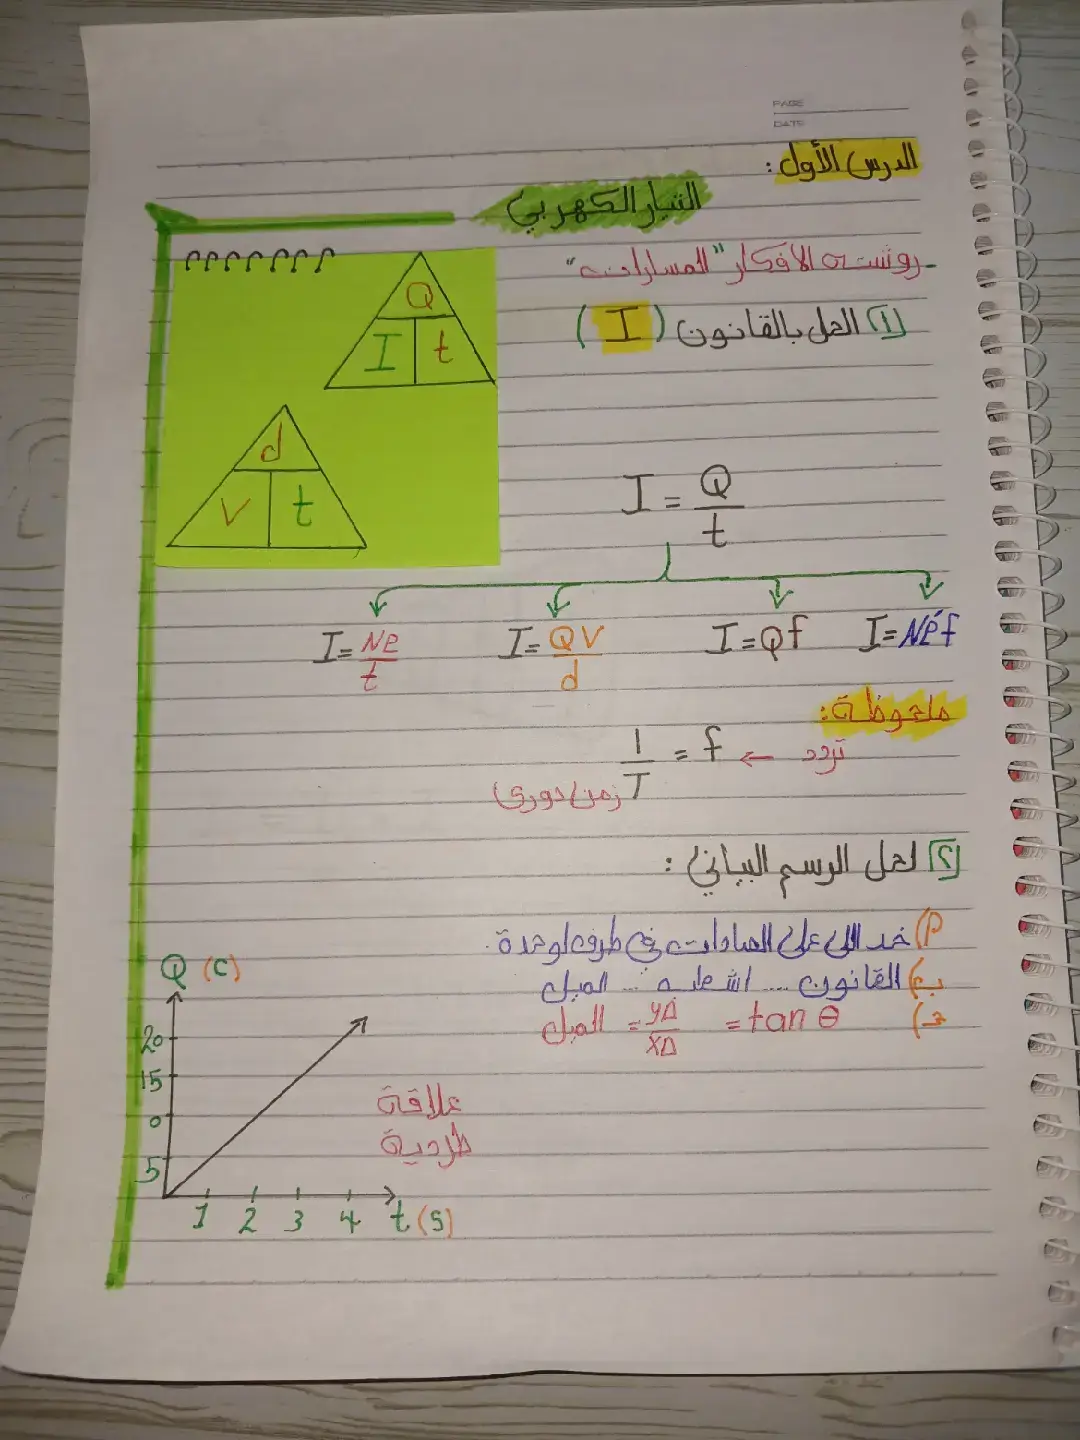 PAGE
DATE
الدرس الأول:
التيار الكهربي
روشته الأفكار "المسارات"
[1] الحل بالقانون ( I )
Q
I t
d
V t
I = Q/t
I = Ne/t I = QV/d I = Qf I = Ne⁻f
ملحوظة:
تردد ← f = 1/T
زمن دوري
[2] لحل الرسم البياني:
أ) خد اللي على الصادات في طرف لوحدة.
ب) القانون ... اشطبه ... الميل
ج) الميل = yΔ/xΔ = tan θ
Q (C)
20
15
0
5
1 2 3 4 t (s)
علاقة
طردية